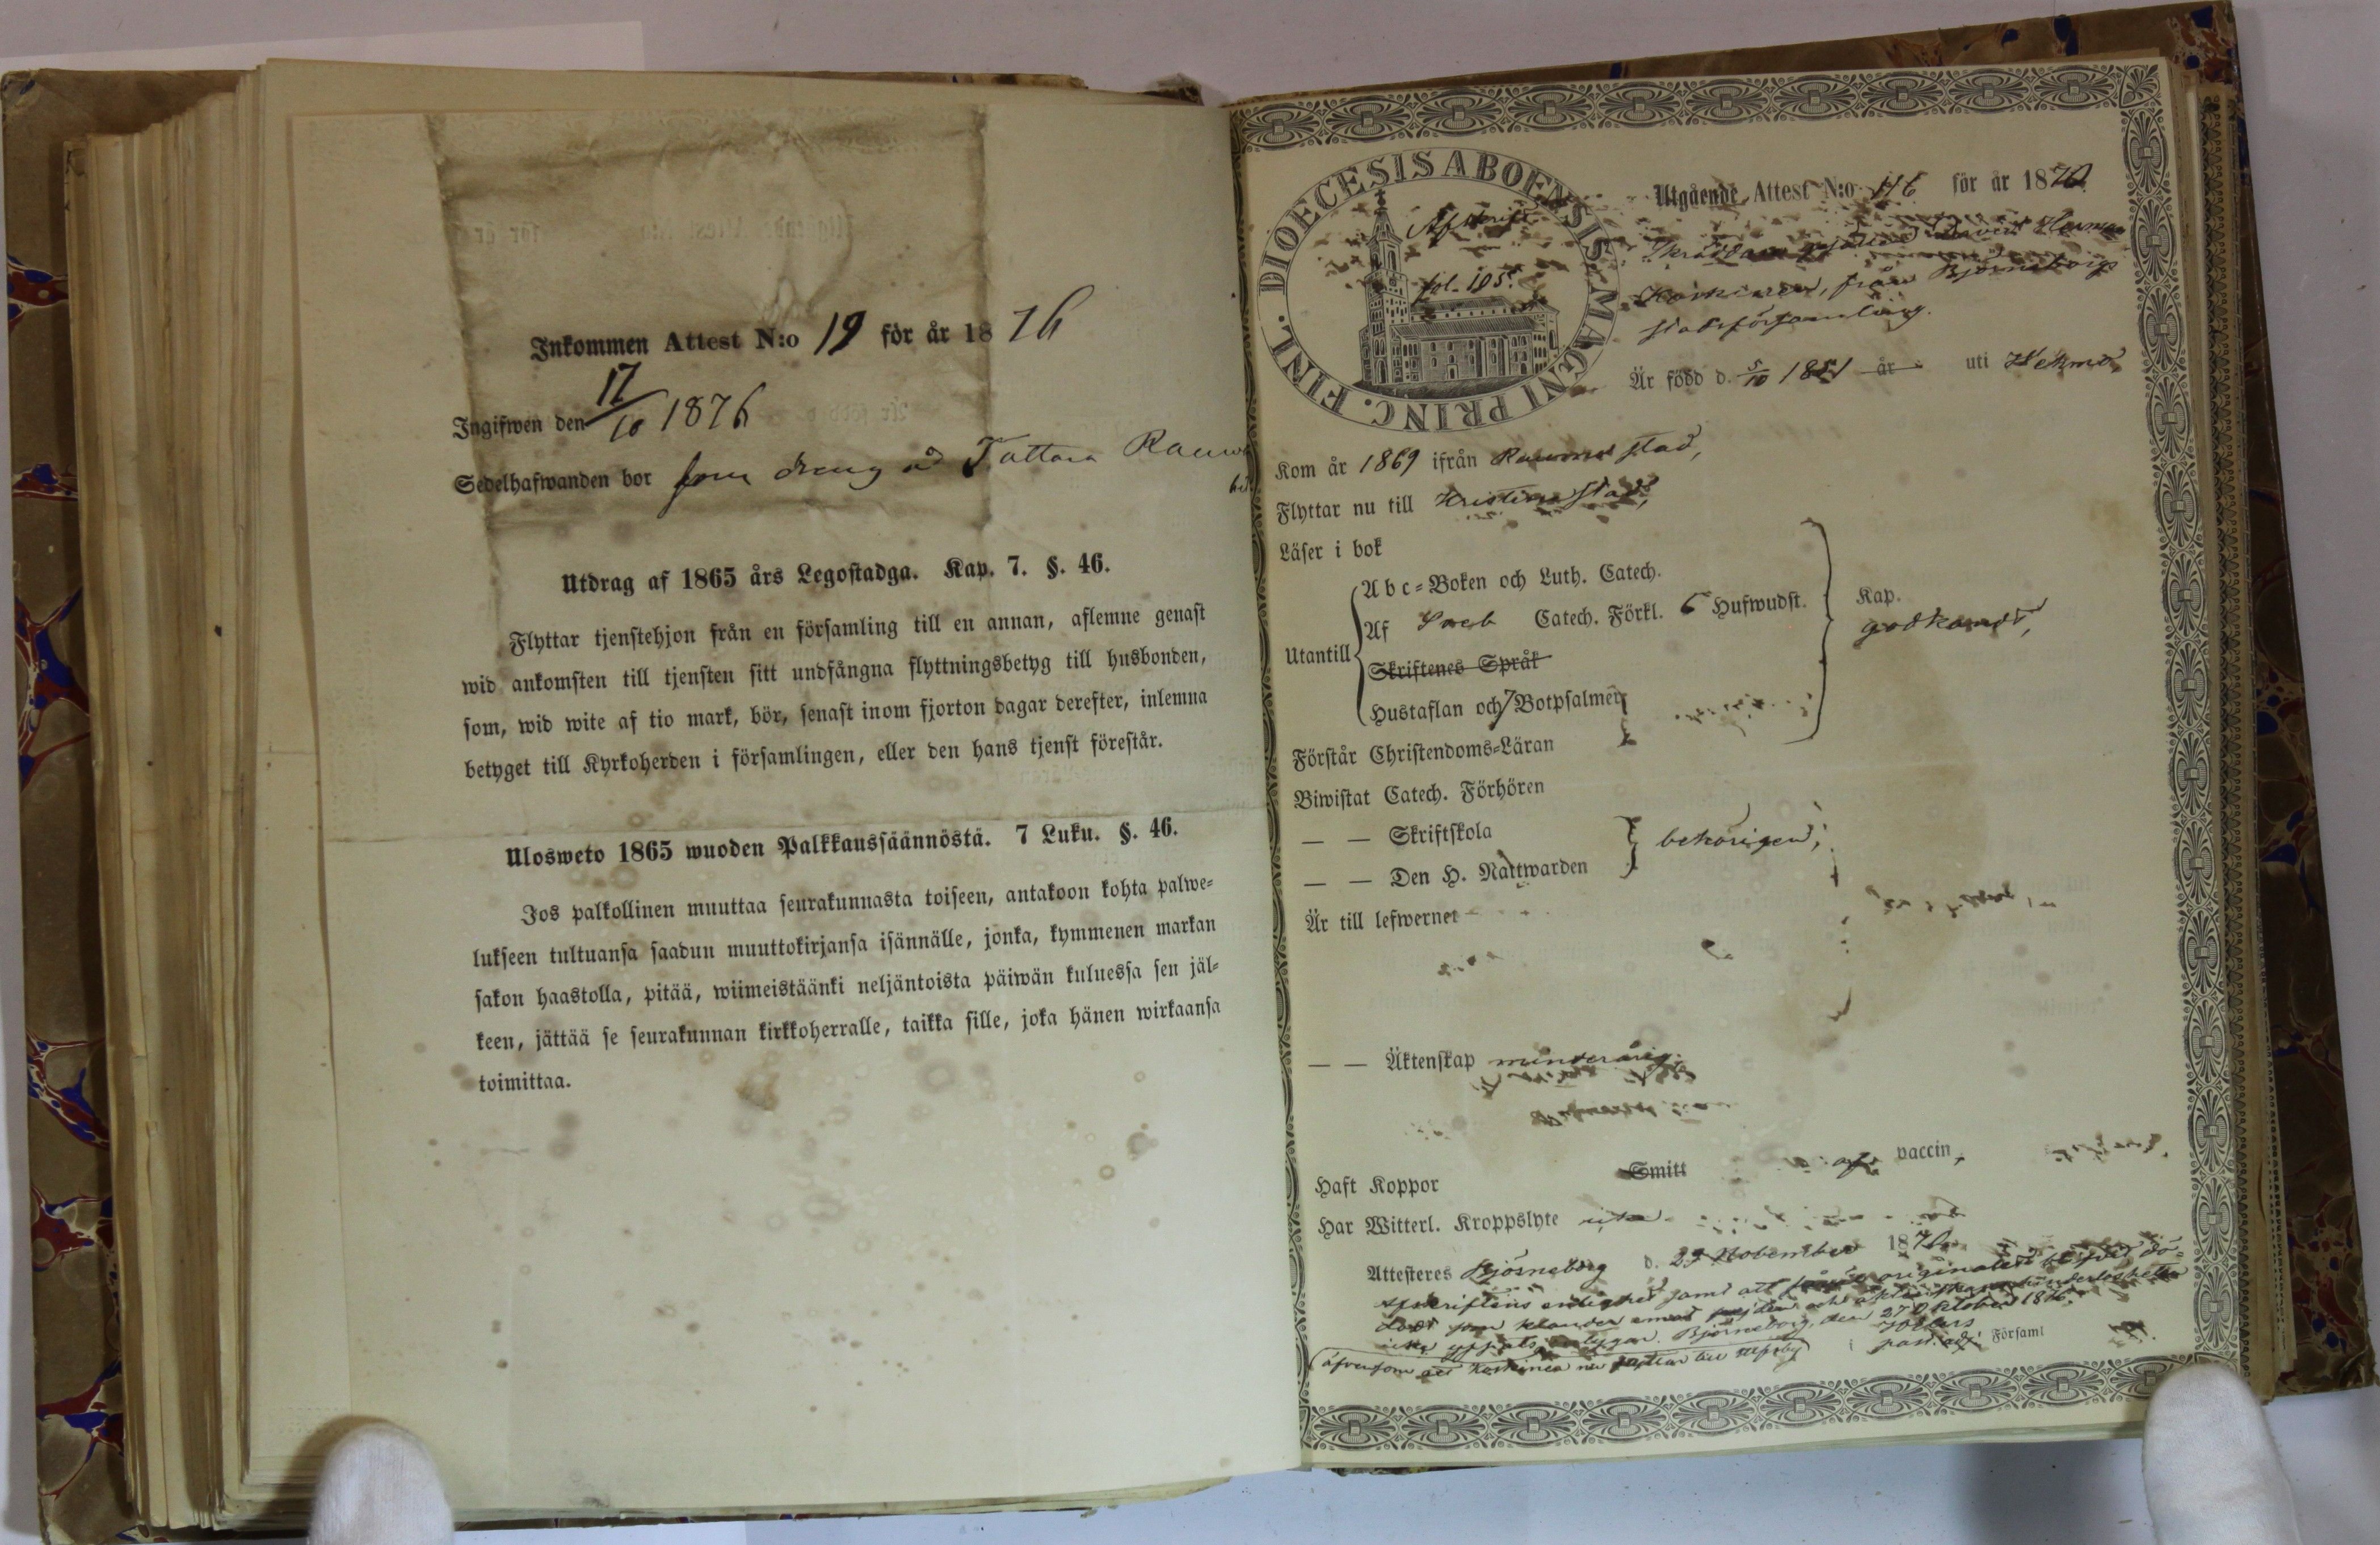 Inkommen Attest N:o 19 för år 1876
Ingifwen den 17/10 1876
Sedelhafwanden bor som dreng å Tattara
Utdrag af 1865 års Legostadga. Kap. 7. §. 46.
Flyttar tjenstehjon från en församling till en annan, aflemne genast
wid ankomsten till tjensten sitt undfångna flyttningsbetyg till husbonden,
som, wid wite af tio mark, bör, senast inom fjorton dagar derefter, inlemna
betyget till Kyrkoherden i församlingen, eller den hans tjenst förestår.
Ulosweto 1865 wuoden Palkkaussäännöstä. 7 Luku. §. 46.
Jos palkollinen muuttaa seurakunnasta toiseen, antakoon kohta palwe=
lukseen tultuansa saadun muuttokirjansa isännälle, jonka, kymmenen markan
sakon haastolla, pitää, wiimeistäänki neljäntoista päiwän kuluessa sen jäl=
keen, jättää se seurakunnan kirkkoherralle, taikka sille, joka hänen wirkaansa
toimittaa.
DIOECESIS ABOENSIS MAGNI PRINC. FINL.
Afskrift
fol. 105.
Utgående Attest N:o 116 för år 1870
Skräddaregesällen David Herman
Koskinen, från Björneborgs
stadsförsamling.
Är född d. 5/10 1851 år uti
Kom år 1869 ifrån Raumo stad,
Flyttar nu till Kristinestad,
Läser i bok
Utantill
Abc=Boken och Luth. Catech.
Af Sveb Catech. Förkl. 6 Hufwudst.
Skriftenes Språk
Hustaflan och 7 Botpsalmer
Kap.
godkändt,
Förstår Christendoms=Läran
Biwistat Catech. Förhören
— — Skriftskola
— — Den H. Nattwarden
behörigen,
Är till lefwernet
— — Äktenskap minderårig.
Haft Koppor Smitt af vaccin,
Har Witterl. Kroppslyte
Attesteres Björneborg d. 29 November 1870
Afskriftens enlighet samt att originalet blifvit dö=
dadt som
Björneborg, den 27 Oktober 1876.
i Församl
äfvensom att Koskinen nu flyttar till